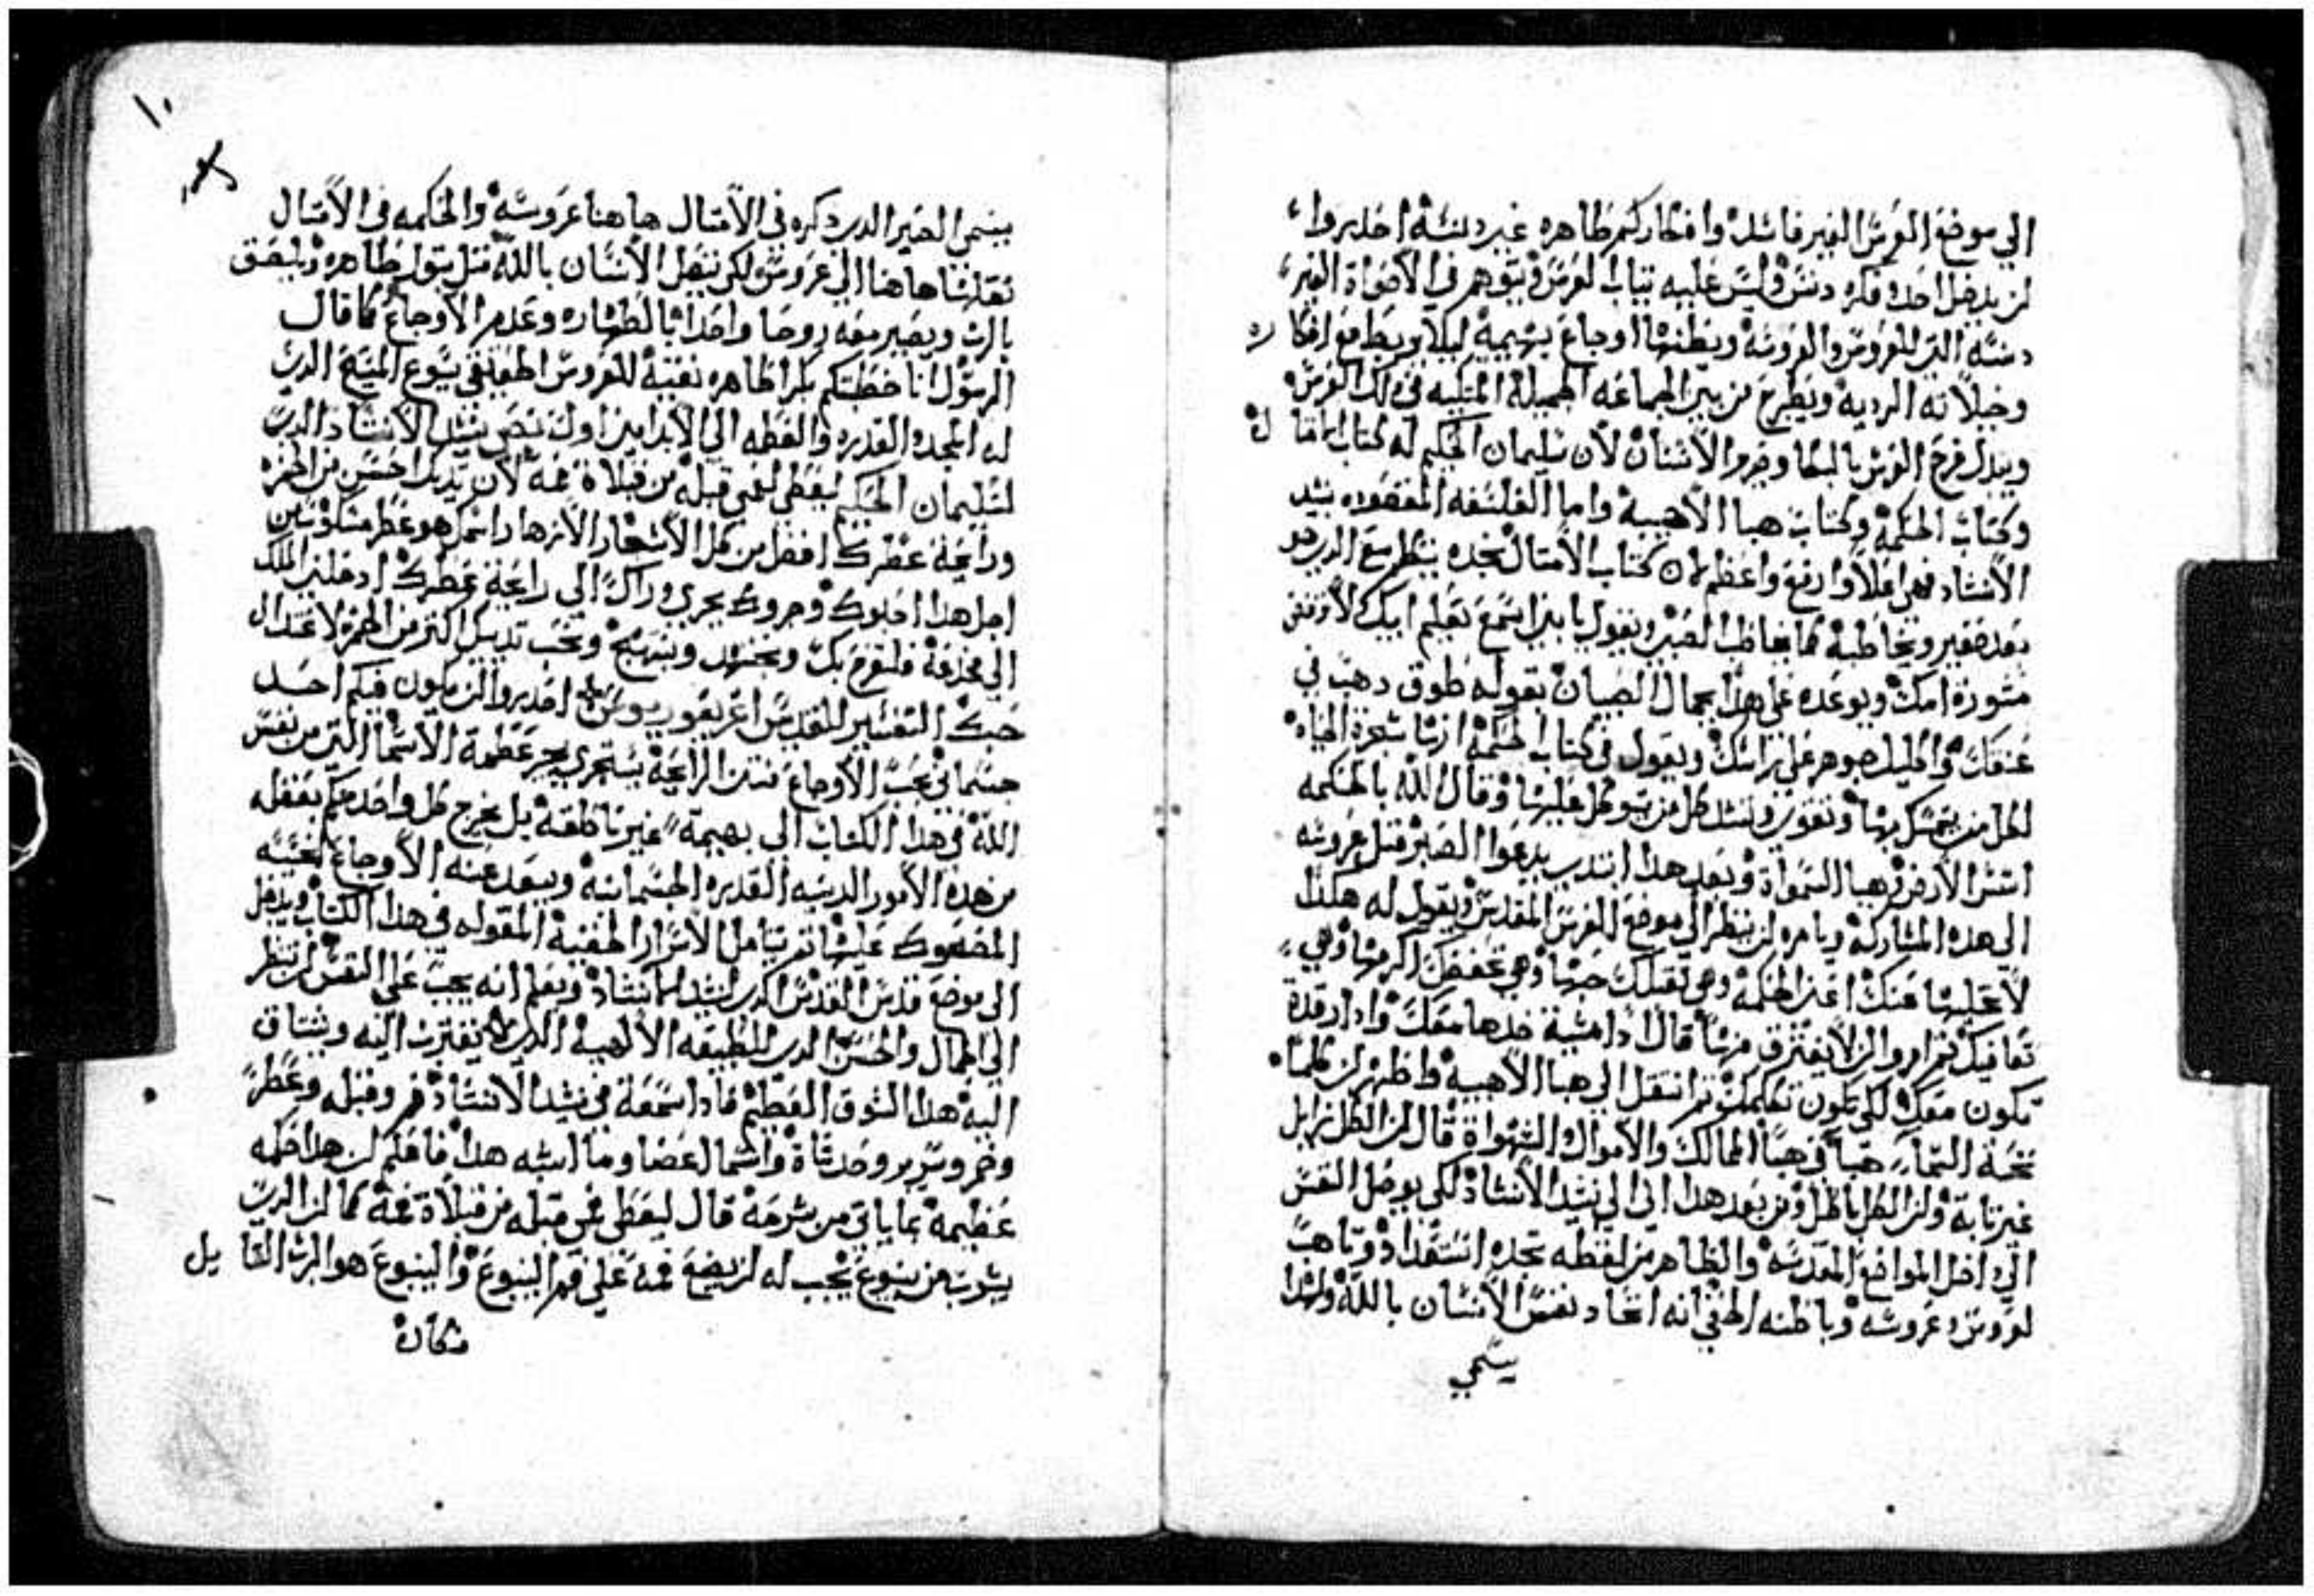 الي موضع العرس الغير فاسد وافكاركم طاهره غير دنسة احذروا
لن يدخل احد وفكره دنس وليس عليه تياب العرس ويتوهم في الاصواة الغير
دنسه التي للعروس والعروسه ويظنها اوجاع بهيمية ليلا يربط مع افكاره
وخيلاته الرديه ويطرح من بين الجماعه الجميلة المتكيه في دلك العرس
ويبدل فرح العرس بالبكا وصرير الاسنان لان سليمان الحكيم له كتاب الامتال
وكتاب الحكمة وكتاب هبا الاهبية واما الفلسفه المقصوده بنشيد
الانشاد فهي اعلا وارفع واعظم لان كتاب الامتال تجده ينظر مع الدي هو
بعد صغير ويخاطبه كما يخاطب الصبي ويقول يابني اسمع تعليم ابيك لا ترفض
مشورة امك ويوعده علي هدا بجمال الصبيان بقوله طوق دهب في
عنقك واكليل جوهر علي راسك ويقول في كتاب الحكمة انها شجرة الحياه
لكل من يتمسك بها وتقوي وتسند كل من يتوكل عليها وقال الله بالحكمه
اسس الارض وهيا السموات وبعد هدا ابتدي يدعوا الصبي متل عروسه
الي هده المشاركة ويامره لن ينظر الي موضع العرس المقدس ويقول له هكدا
لا تخليها عنك اعني الحكمة وهي تقبلك حبها وهي تحفظك اكرمها وهي
تعانقك تم امره ان لا يفترق منها قال ادا مشية خدها معك وادا رقدة
تكون معك لكي تكون تكلمك تم انتقل الي هبا الاهبية واظهر لن كلما
تحت السما هبا في هبا الممالك والاموال الشهواة قال لن الكل زايل
غير تابة ولن الكل باطل ومن بعد هدا اتي الي نشيد الانشاد لكي يوصل النفس
الي داخل المواضع المقدسه والظاهر من لفظه تجده استعداد وتاهب
لعروس وعروسه وباطنه الخفي انه اتحاد نفس الانسان بالله ولهدا
يسمي
١٠
يسمي الصغير الدي دكره في الامتال هاهنا عروسه والحكمه في الامتال
نقلها هاهنا الي عروس لكي يتصل الانسان بالله متل بتول طاهره ويلتصق
بالرب ويصير معه روحا واحدا بالطهاره وعدم الاوجاع كما قال
الرسول انا خطبتكم بكرا طاهره نقية للعروس الحقيقي يسوع المسيح الدي
له المجد والقدره والعظمه الي الابد امين اول نص نشيد الانشاد الدي
لسليمان الحكيم ليعطي لفمي قبلة من قبلاة فمه لان تدياك احسن من الخمر
ورايحة عطرك افضل من كل الاشجار الازهار اسمك هو عطر مسكوب من
اجل هدا احبوك وجروك يجري وراك الي رايحة عطرك ادخلني الملك
الي مخدعة فلنفرح بك ونجتهد ونبتهج ونحب تدييك اكتر من الخمر لاعتدال
حبك التفسير للقديس اغريغوريوس احدروا لن يكون فيكم احد
جسماني يحب الاوجاع نتن الرايحة يستجري يجر عظمة الاسما التي من نفس
الله في هدا الكتاب الي بهيمة غير ناطقة بل يخرج كل واحد منكم بعقله
من هده الامور الدنيه القدره الجسمانيه ويبعد عنه الاوجاع الخبيثه
المضحوك عليها تم يتامل الاسرار الخفية المقوله في هدا الكتاب ويدخل
الي موضع قدس القدس الدي لنشيد الانشاد ونعلم انه يجب علي النفس لن تنظر
الي الجمال والحسن الدي للطبيعه الالهية الدي لا يقترب اليه ويشتاق
اليه هدا الشوق العظيم فادا سمعة في نشيد الانشاد فم وقبله وعطر
وخمر وسرير وخد شاة واسما اعضا وما اشبه هدا فاعلم لن هدا حكمه
عظيمة بما ياتي من شرحه قال ليعطي فمي قبله من قبلاة فمه كما لن الدي
يشرب من ينبوع يجب له لن يضع فمه علي فم الينبوع والينبوع هو الرب القايل
متكاه